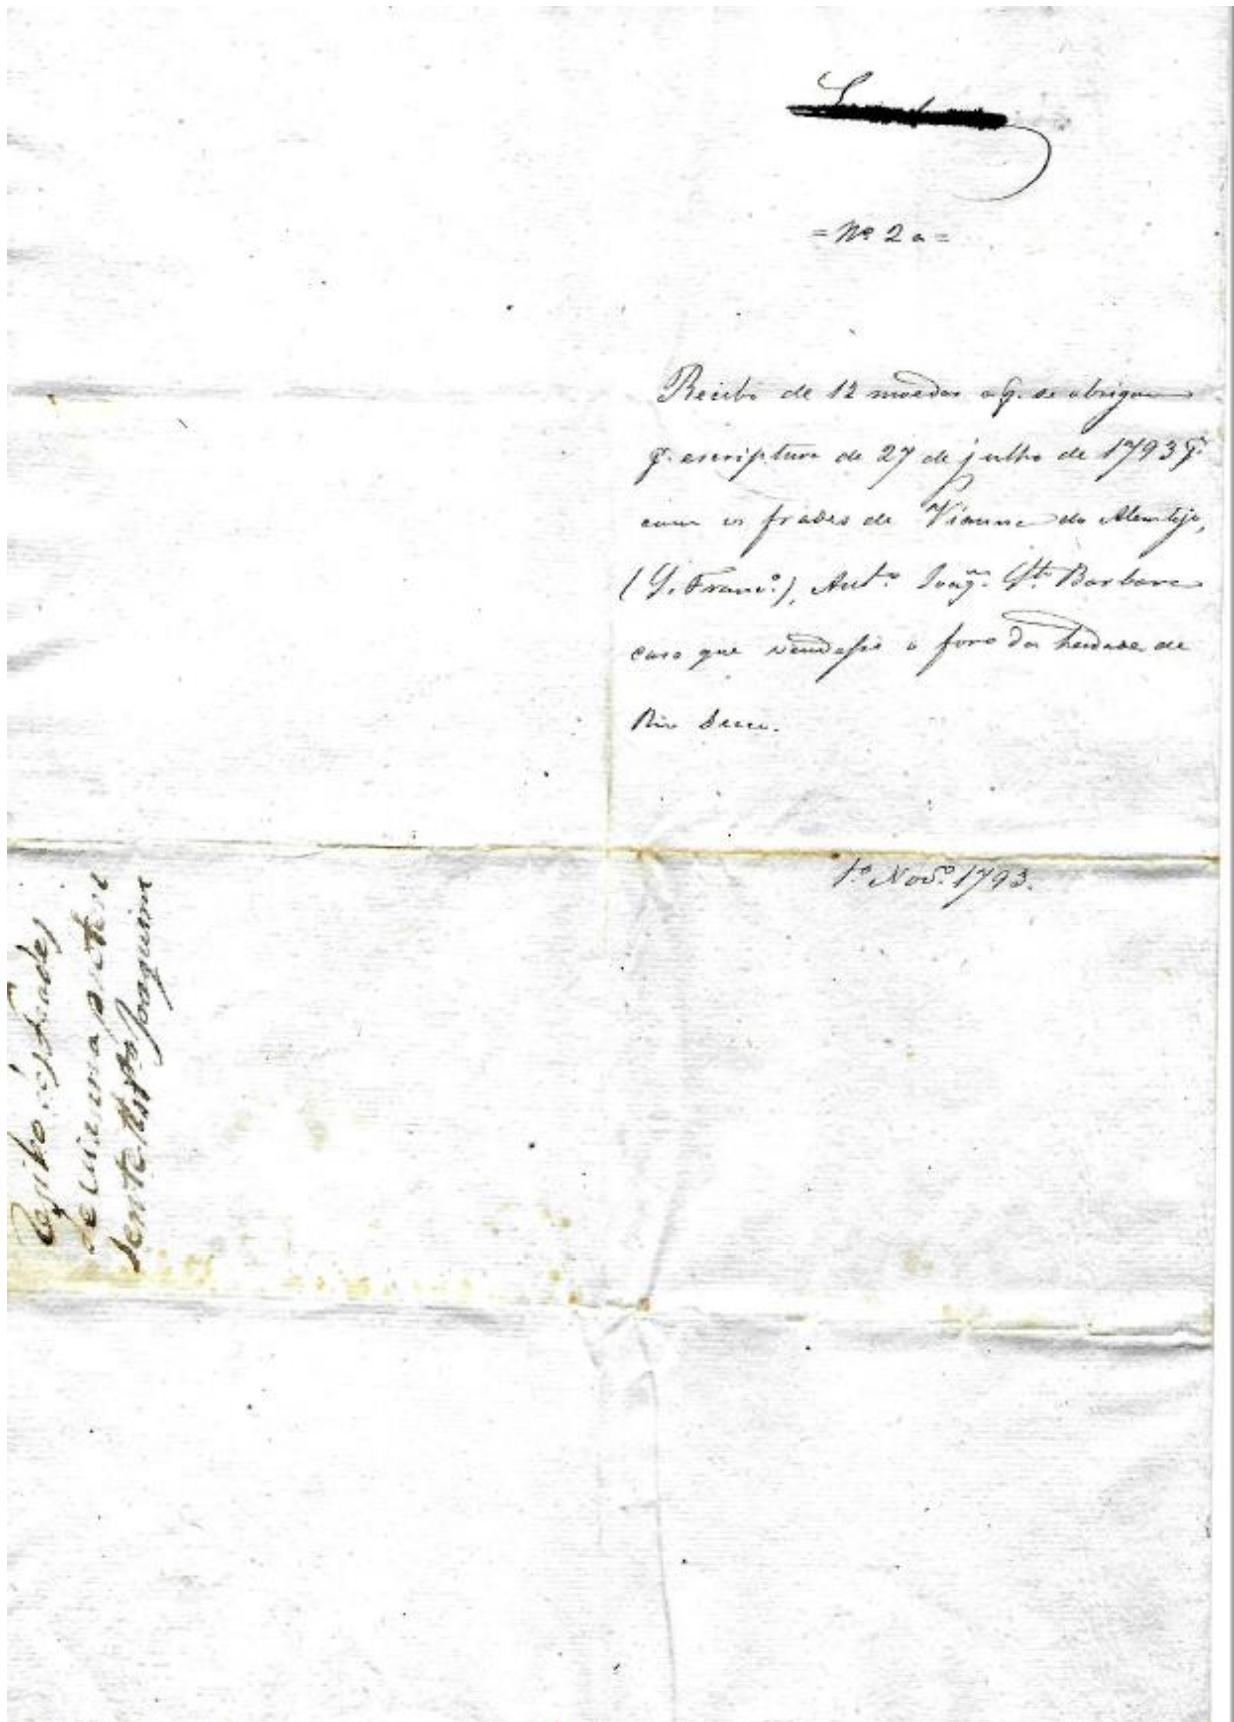 = Nº 2 a =
Recibo de 12 moedas a q. se obrigou
p. escriptura de 27 de julho de 1793 pª
com os frades de Vianna do Alemtejo,
(S. Francº), Antº Joaqm. Stª Barbara
caso que vendesse o foro da herdade de
Rio Secco.
1º Novº 1793.
Resibo dos frades
de vianna
Joaquim